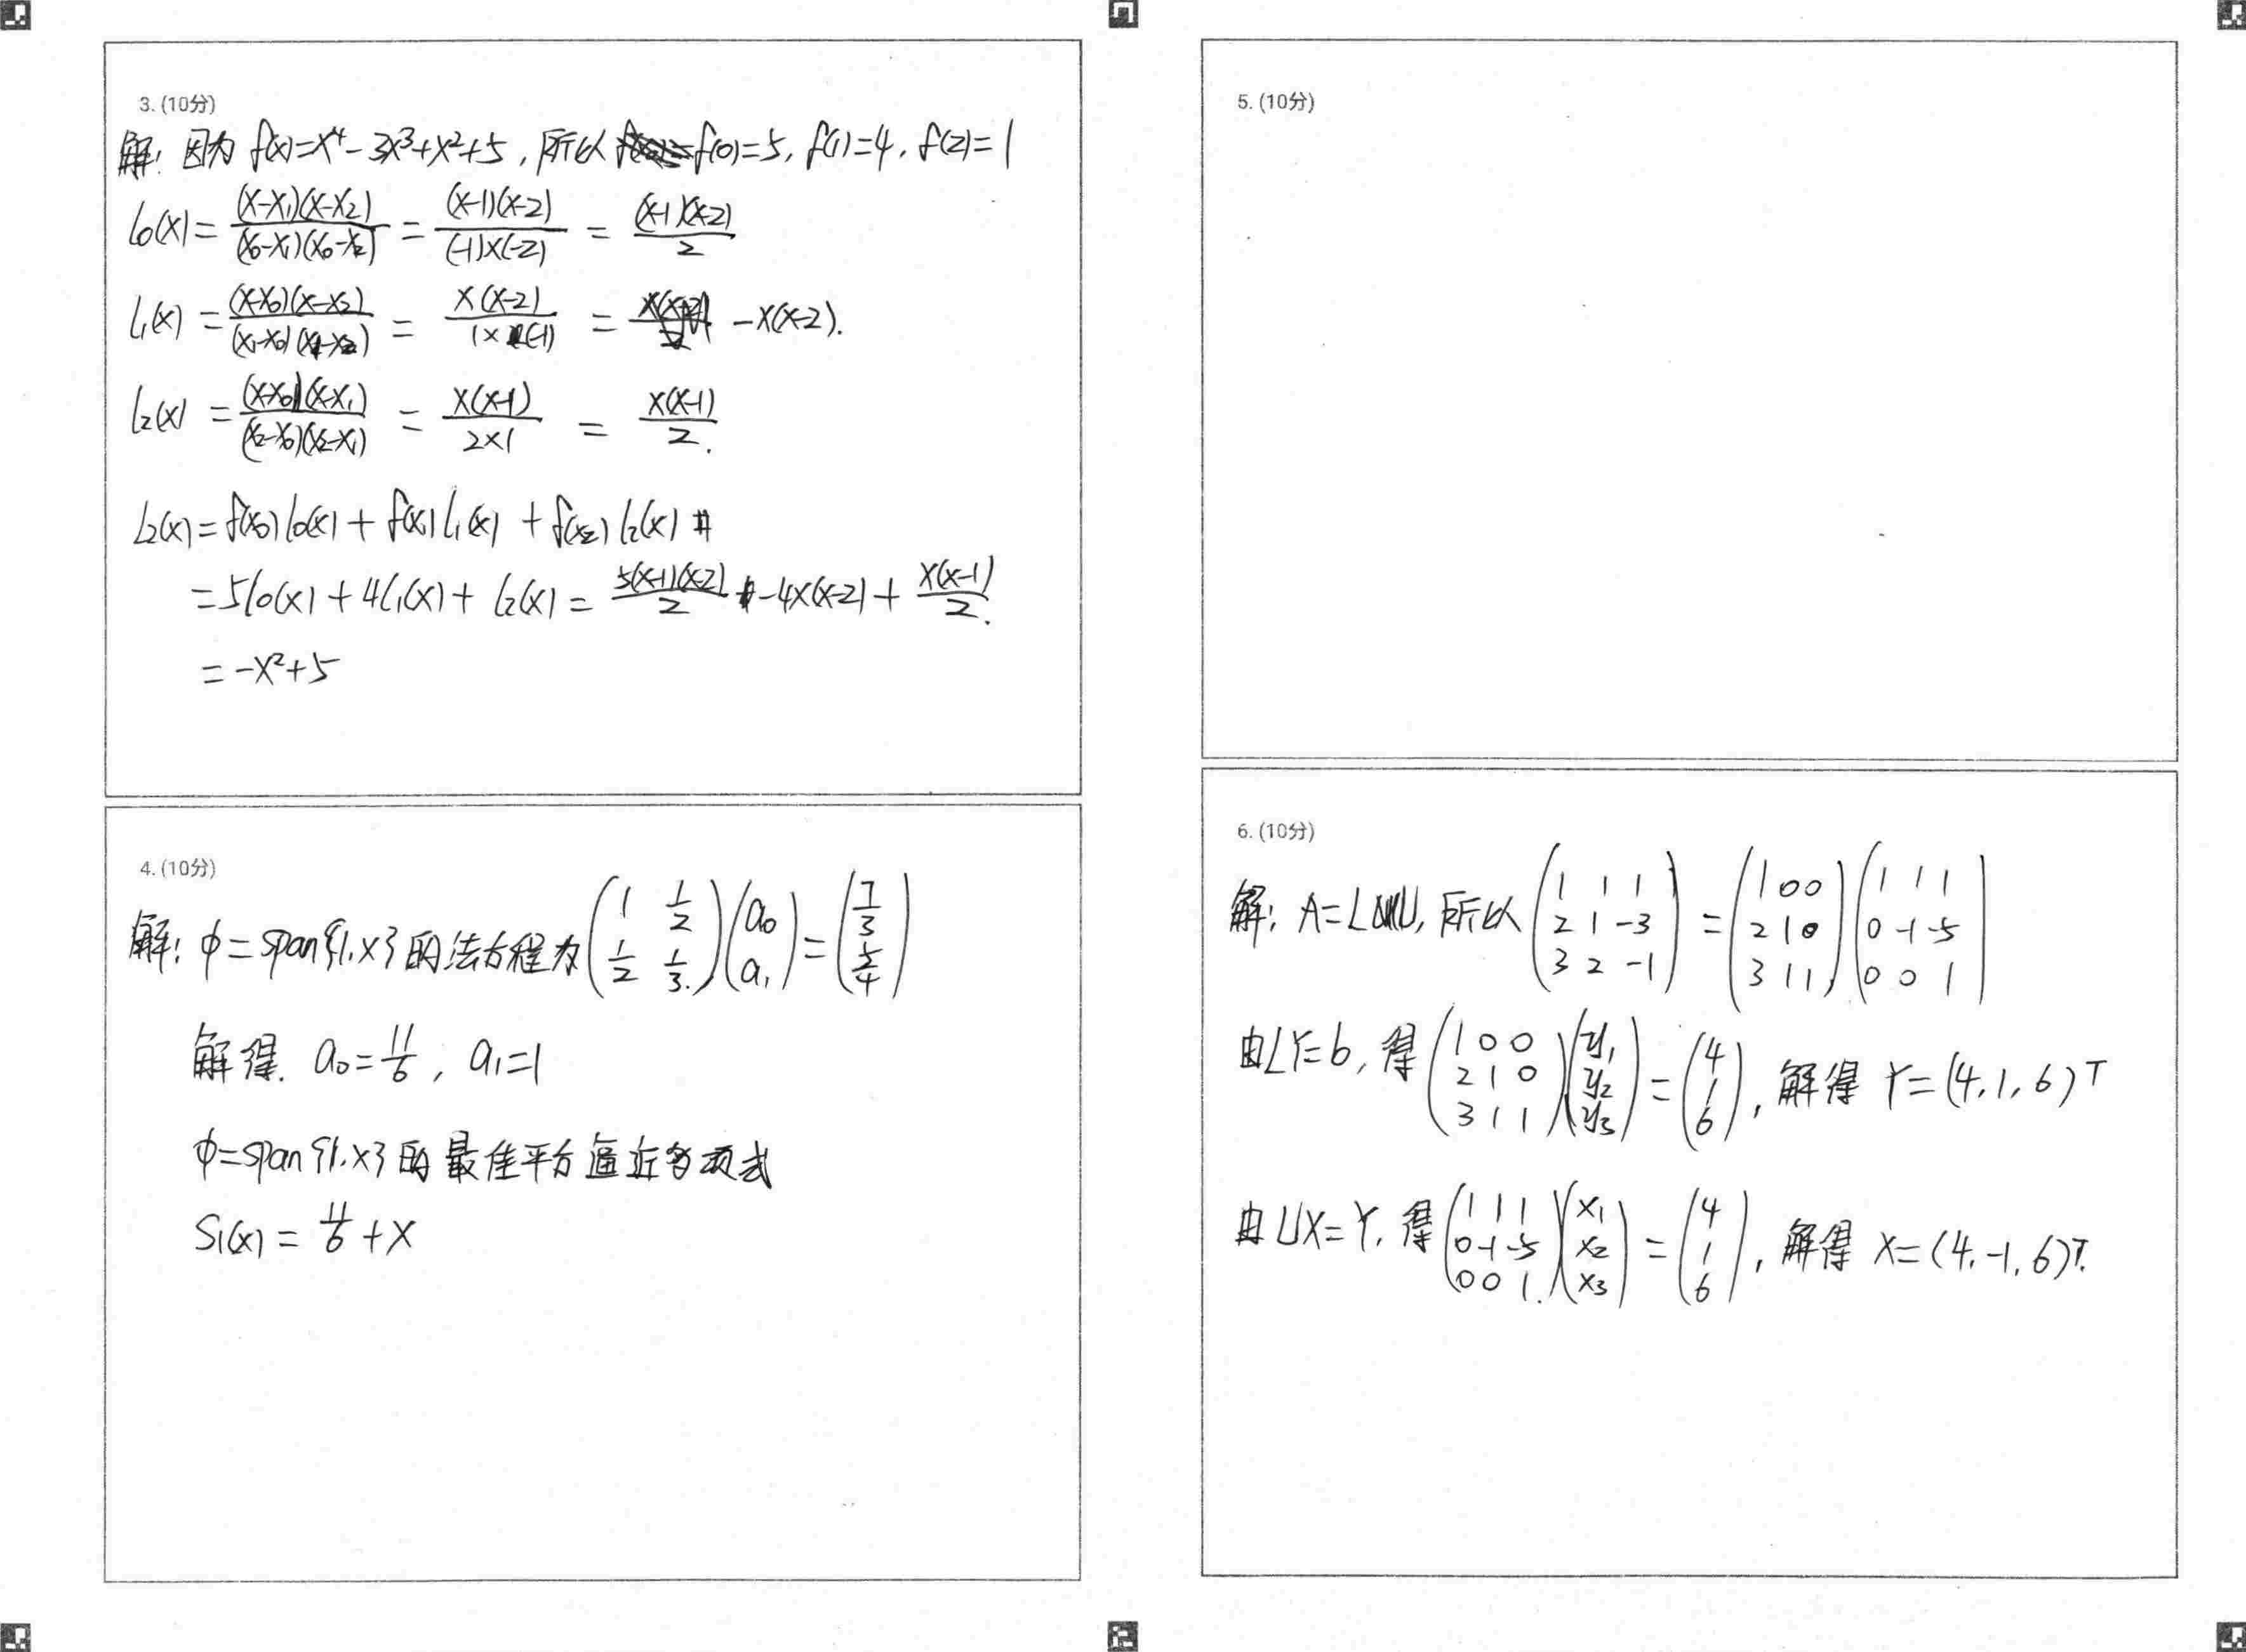 3. (10分)
解: 因为 f(x)=x⁴-3x³+x²+5, 所以 f(0)=5, f(1)=4, f(2)=1
l₀(x)=\frac{(x-x₁)(x-x₂)}{(x₀-x₁)(x₀-x₂)}=\frac{(x-1)(x-2)}{(-1)×(-2)}=\frac{(x-1)(x-2)}{2}
l₁(x)=\frac{(x-x₀)(x-x₂)}{(x₁-x₀)(x₁-x₂)}=\frac{x(x-2)}{1×(-1)}=-x(x-2).
l₂(x)=\frac{(x-x₀)(x-x₁)}{(x₂-x₀)(x₂-x₁)}=\frac{x(x-1)}{2×1}=\frac{x(x-1)}{2}.
L₂(x)=f(x₀)l₀(x)+f(x₁)l₁(x)+f(x₂)l₂(x)
=5l₀(x)+4l₁(x)+l₂(x)=\frac{5(x-1)(x-2)}{2}-4x(x-2)+\frac{x(x-1)}{2}.
=-x²+5
4. (10分)
解: φ=span{1,x}的法方程为\begin{pmatrix}1&\frac{1}{2}\\\frac{1}{2}&\frac{1}{3}\end{pmatrix}\begin{pmatrix}a₀\\a₁\end{pmatrix}=\begin{pmatrix}\frac{7}{3}\\\frac{5}{4}\end{pmatrix}
解得. a₀=\frac{11}{6}, a₁=1
φ=span{1,x}的最佳平方逼近多项式
S₁(x)=\frac{11}{6}+x
5. (10分)
6. (10分)
解: A=LU, 所以\begin{pmatrix}1&1&1\\2&1&-3\\3&2&-1\end{pmatrix}=\begin{pmatrix}1&0&0\\2&1&0\\3&1&1\end{pmatrix}\begin{pmatrix}1&1&1\\0&-1&-5\\0&0&1\end{pmatrix}
由LY=b, 得\begin{pmatrix}1&0&0\\2&1&0\\3&1&1\end{pmatrix}\begin{pmatrix}y₁\\y₂\\y₃\end{pmatrix}=\begin{pmatrix}4\\1\\6\end{pmatrix}, 解得 Y=(4,1,6)ᵀ
由UX=Y, 得\begin{pmatrix}1&1&1\\0&-1&-5\\0&0&1\end{pmatrix}\begin{pmatrix}x₁\\x₂\\x₃\end{pmatrix}=\begin{pmatrix}4\\1\\6\end{pmatrix}, 解得 X=(4,-1,6)ᵀ.